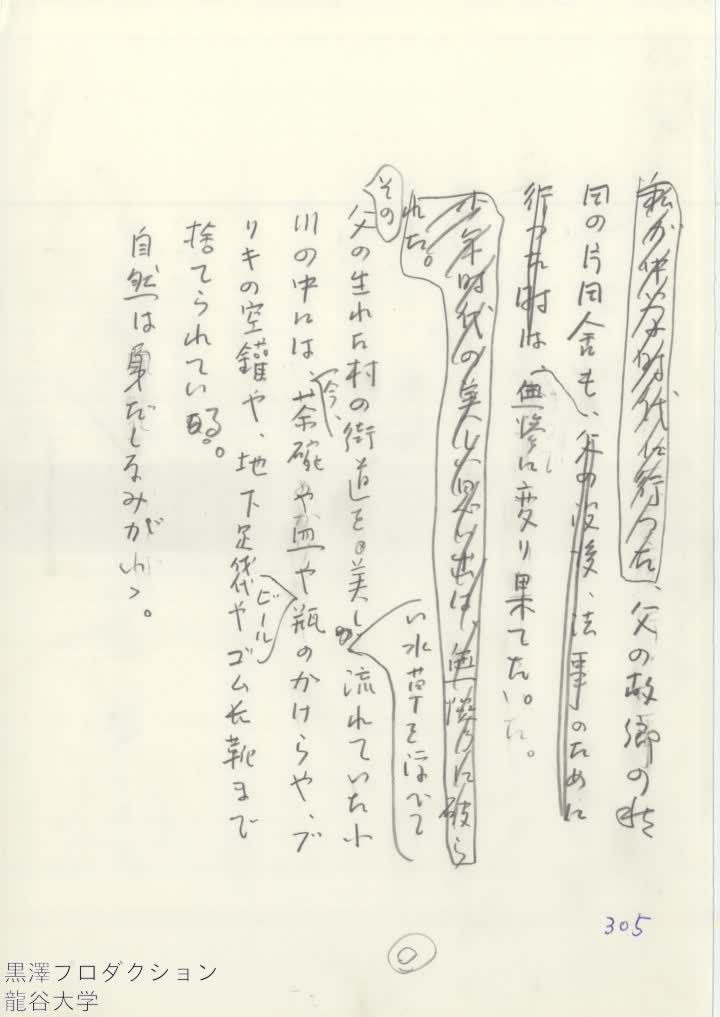 私が中学時代に行った、父の故郷の秋
田の片田舎も、父の没後、法事のために
行った時は、無惨に変り果てた。
少年時代の美しい思い出は、無惨に破ら
れた。
その
父の生れた村の街道を美し
い水草を浮べて
流れていた小
川の中には、
今、
茶碗や皿や
ビール
瓶のかけらや、ブ
リキの空罐や、地下足袋やゴム長靴まで
捨てられている。
自然は身だしなみがいゝ。
305
黒澤プロダクション
龍谷大学